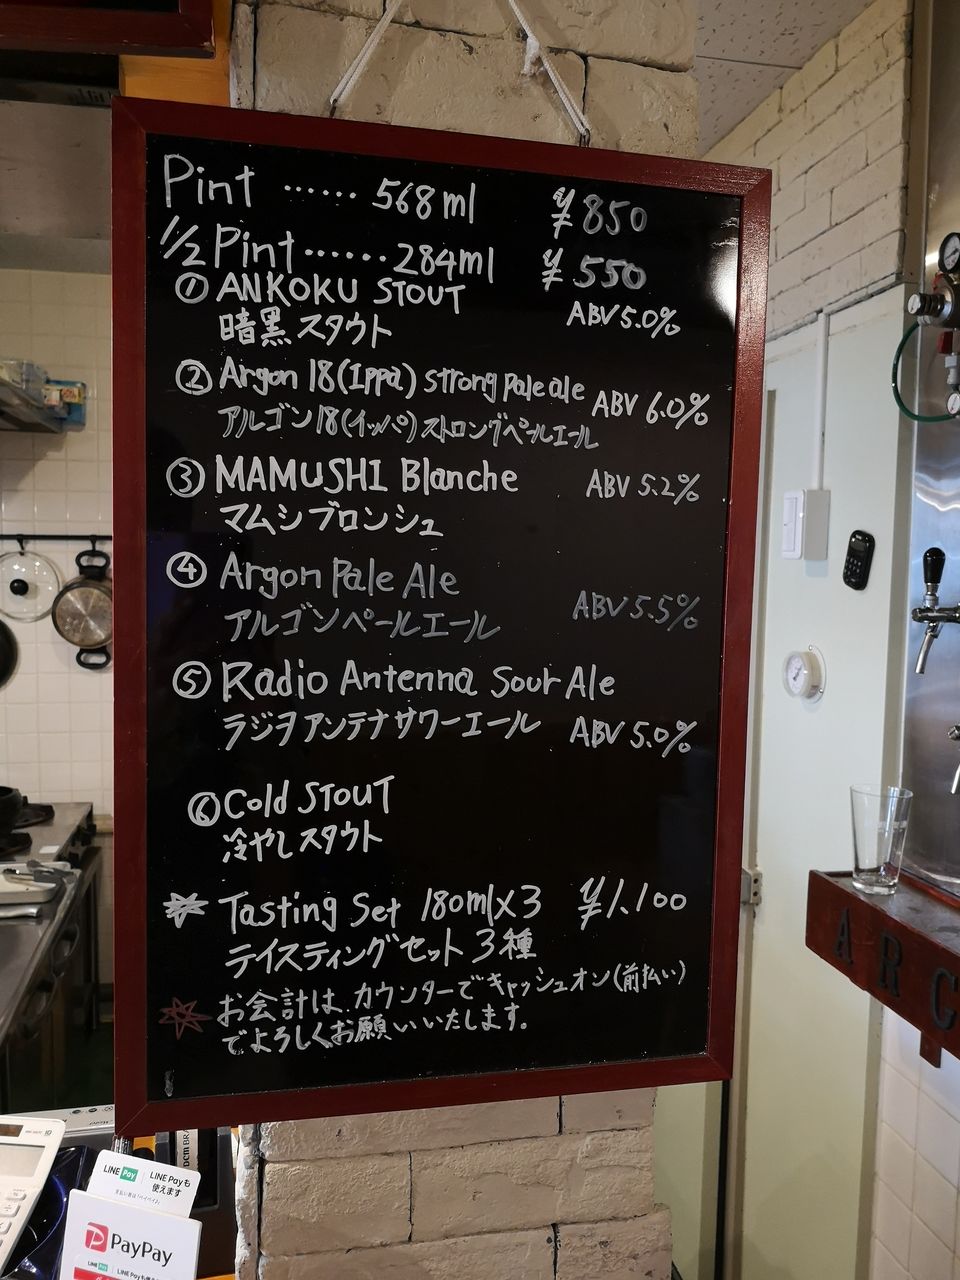 Pint ...... 568ml ¥850
1/2 Pint...... 284ml ¥550
① ANKOKU STOUT ABV 5.0%
暗黒スタウト
② Argon 18(Ippa) strong pale ale ABV 6.0%
アルゴン18(イッパ)ストロングペールエール
③ MAMUSHI Blanche ABV 5.2%
マムシブロンシュ
④ Argon Pale Ale
アルゴンペールエール ABV 5.5%
⑤ Radio Antenna Sour Ale
ラジヲアンテナサワーエール ABV 5.0%
⑥ Cold STOUT
冷やしスタウト
Tasting Set 180ml×3 ¥1,100
テイスティングセット 3種
お会計は、カウンターでキャッシュオン(前払い)
でよろしくお願いいたします。
ARG
LINE Pay LINE Payも
使えます
PayPay
LINE Pay LINE Payも